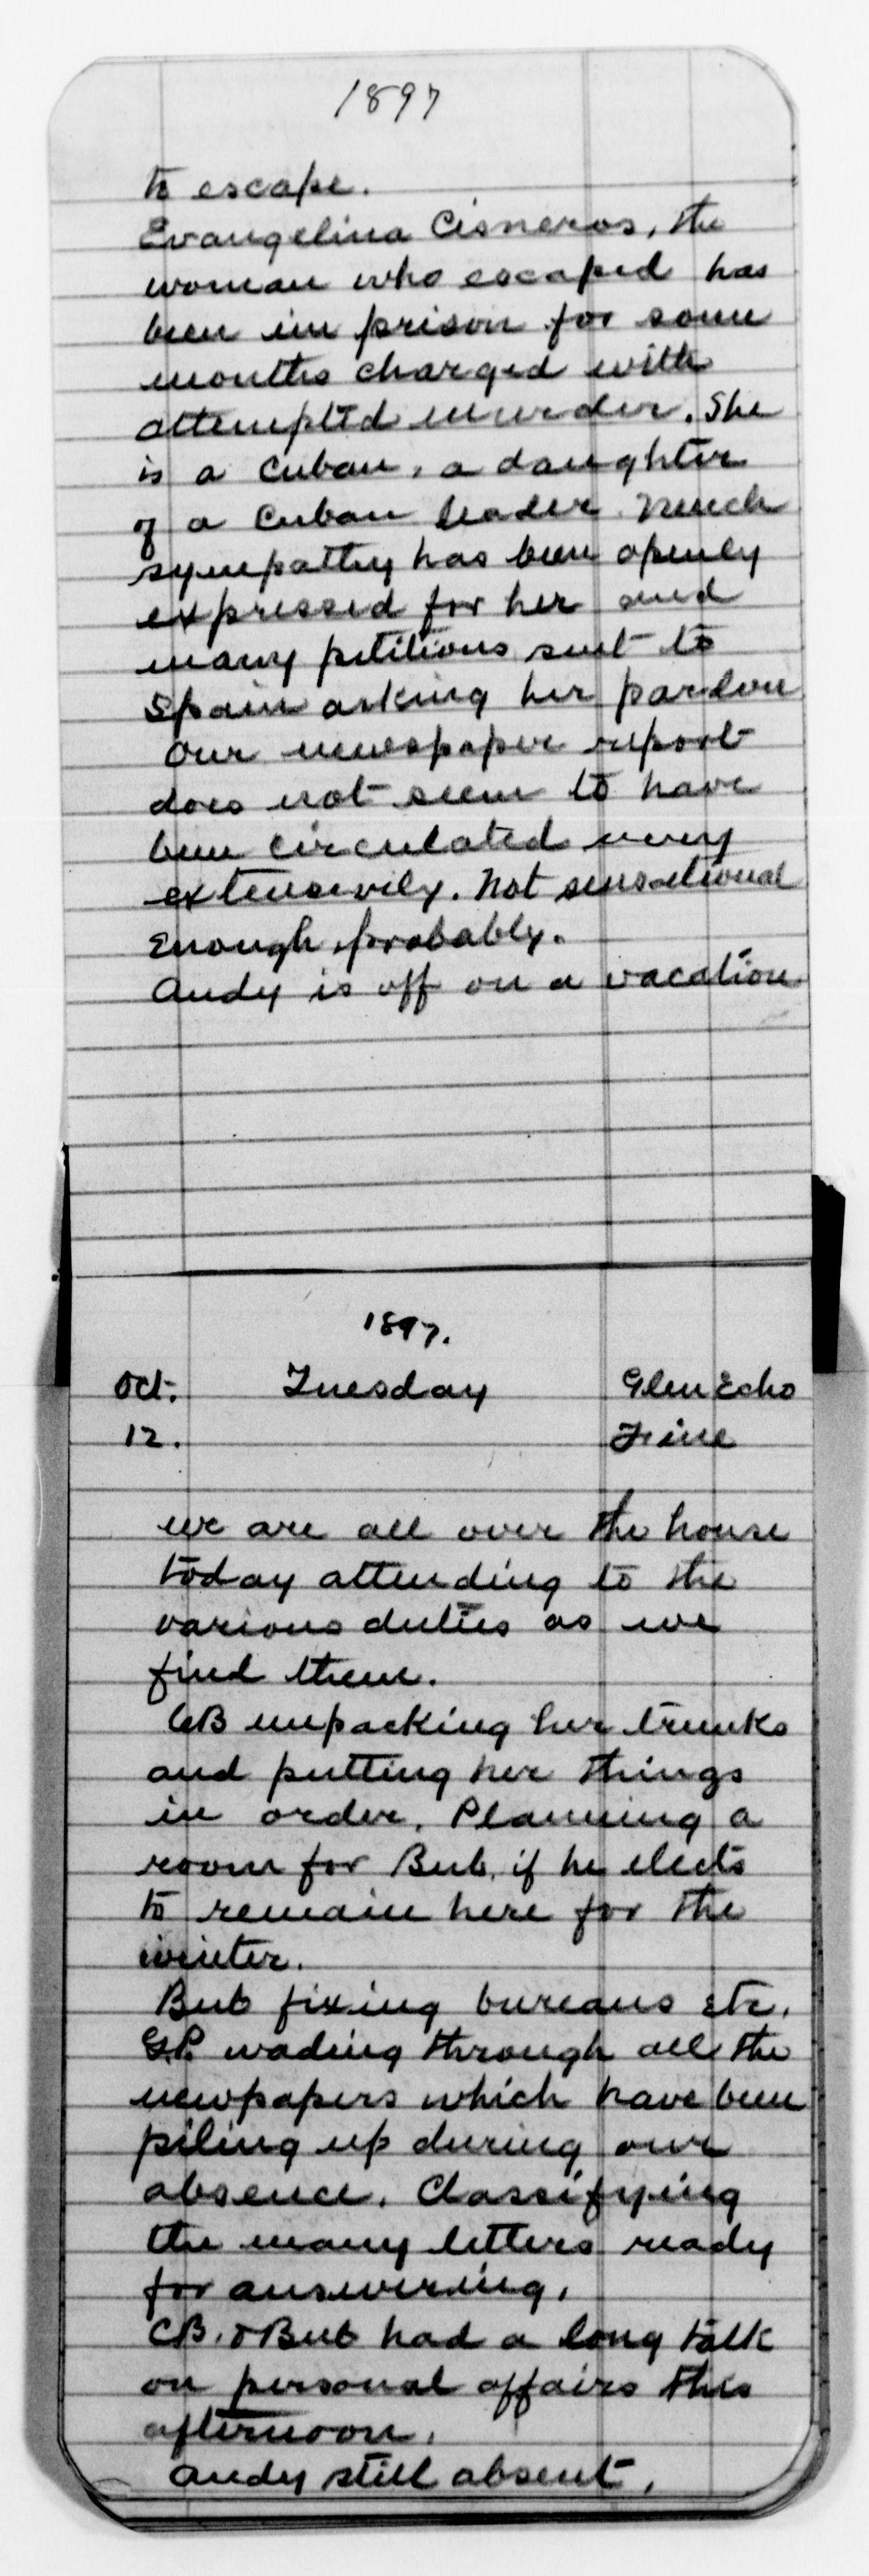 1897
to escape.
Evangelina Cisneros, the
woman who escaped has
been in prison for some
months charged with
attempted murder. She
is a Cuban, a daughter
of a Cuban leader. Much
sympathy has been openly
expressed for her and
many petitions sent to
Spain asking her pardon
Our newspaper report
does not seem to have
been circulated very
extensively. Not sensational
enough, probably.
Andy is off on a vacation
1897.
Oct. Tuesday Glen Echo
12. Fine
We are all over the house
today attending to the
various duties as we
find them.
CB unpacking her trunks
and putting her things
in order. Planning a
room for Bub, if he elects
to remain here for the
winter.
Bub fixing bureaus etc.
G.P. wading through all the
newpapers which have been
piling up during our
absence. Classifying
the many letters ready
for answering.
CB. & Bub had a long talk
on personal affairs this
afternoon.
Andy still absent.